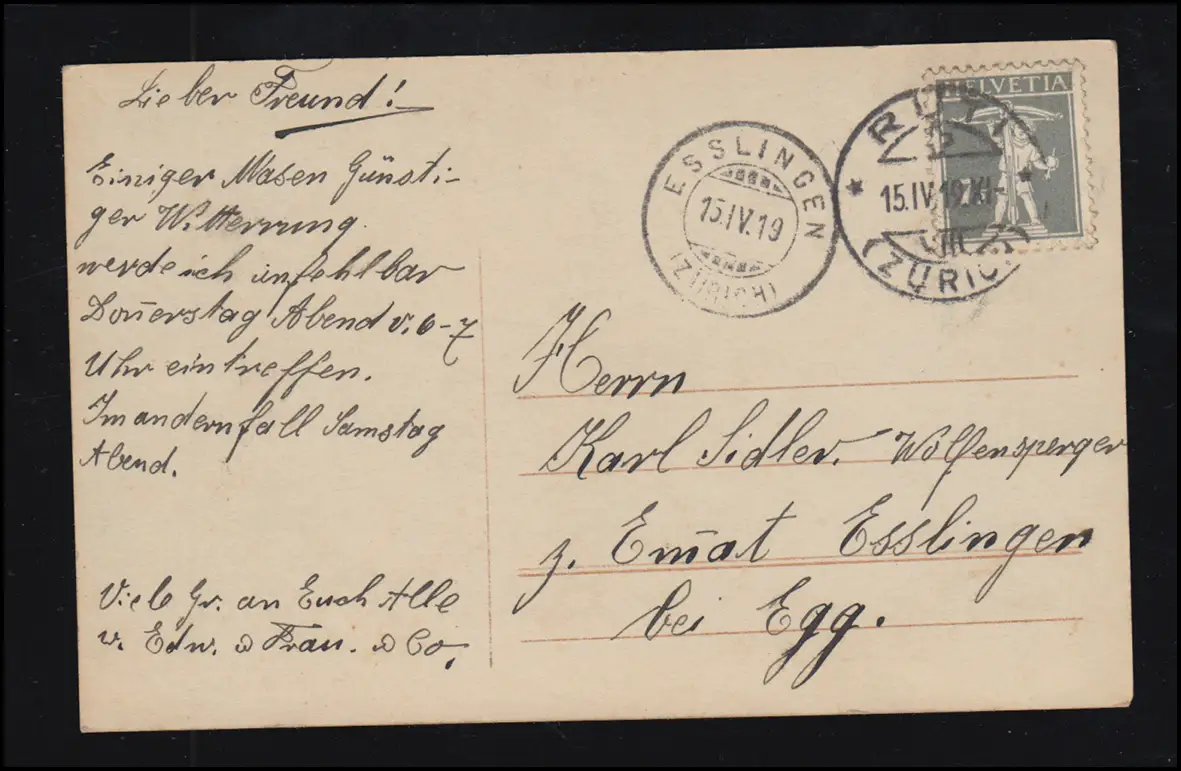 Lieber Freund!
Einiger Masen Günsti-
ger Witterrung
werde ich unfehlbar
Don̅erstag Abend v. 6-7
Uhr eintreffen.
Im andernfall Samstag
Abend.
Viele Gr. an Euch Alle
v. Edw. & Frau. & Co.
ESSLINGEN
15.IV.19
(ZÜRICH)
RÜTI
15.IV.19.XI-
VIII
(ZÜRICH)
HELVETIA
Herrn
Karl Sidler. Wolfensperger
z. Em̅at Esslingen
bei Egg.